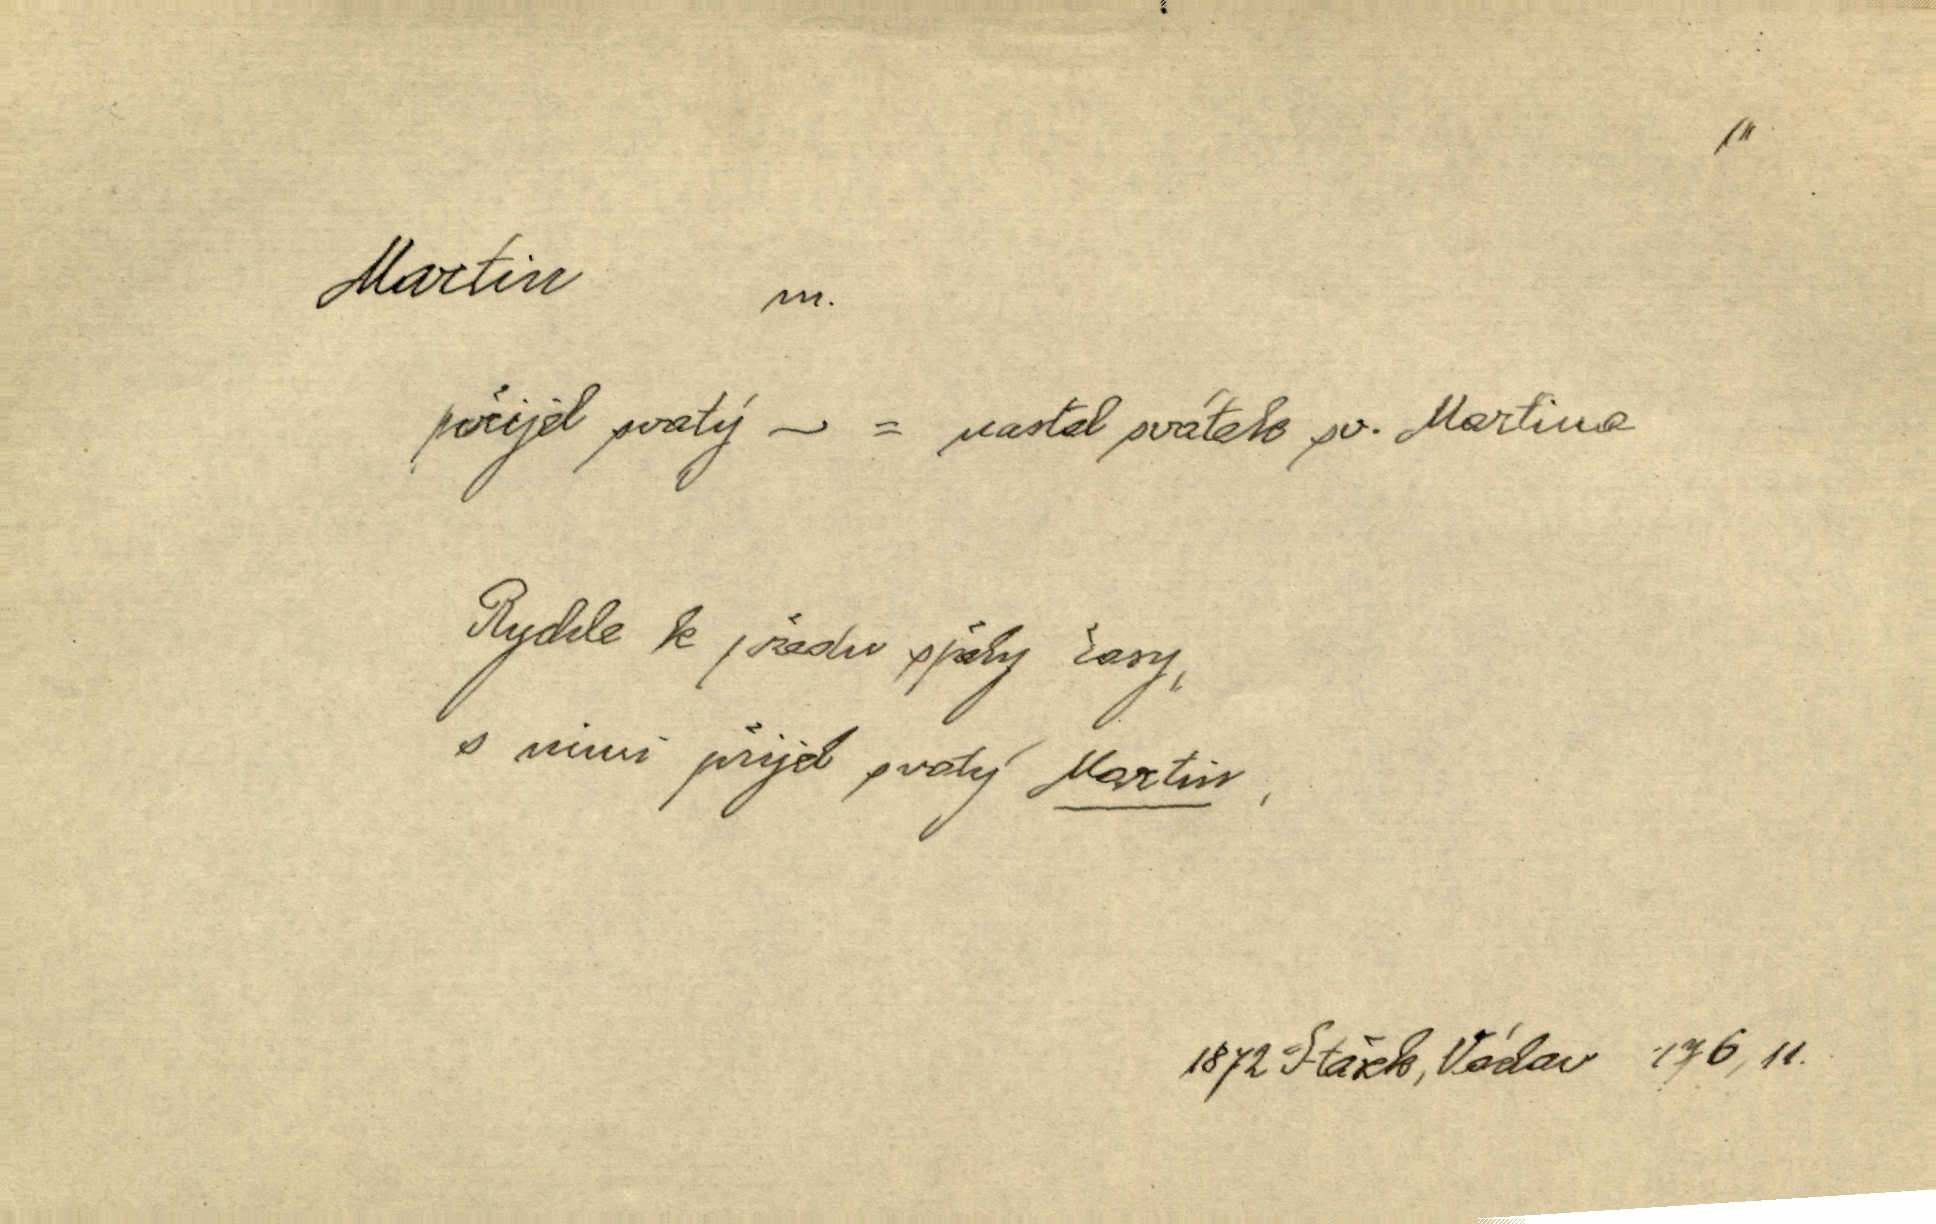 Martin m.
přijel svatý ~ = nastal svátek sv. Martina
Rychle k předu spěly časy,
s nimi přijel svatý Martin,
1872 Václav 176, 11.